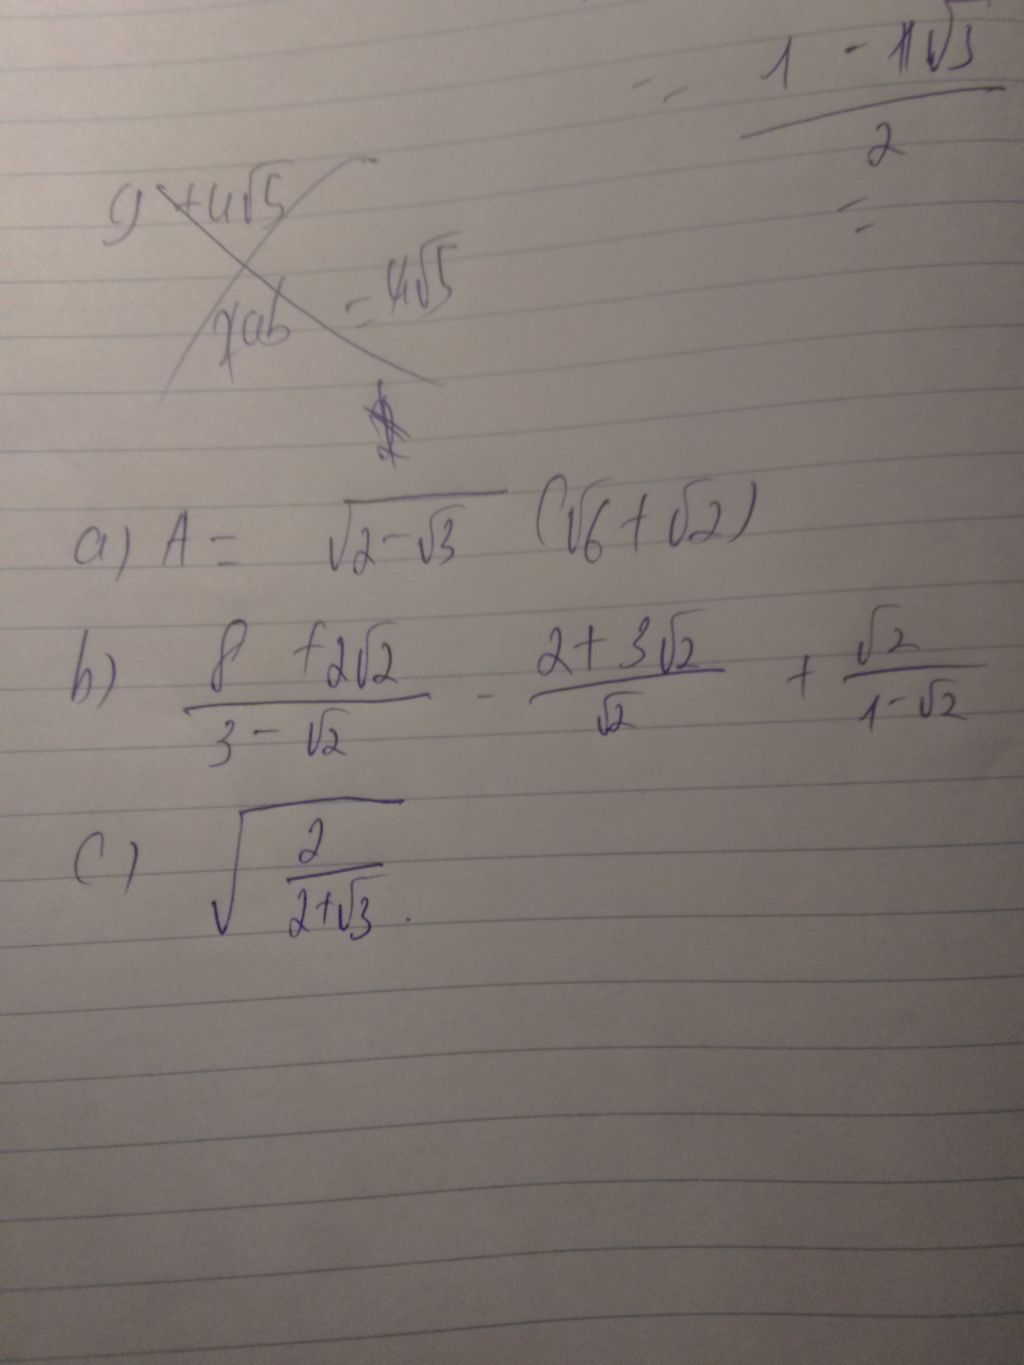 = (1 - 1√3)/2
=
9 + 4√5
2ab = 4√5
a) A = √(2-√3) (√6 + √2)
b) (8 + 2√2)/(3 - √2) - (2 + 3√2)/√2 + √2/(1 - √2)
c) √(2/(2+√3)).